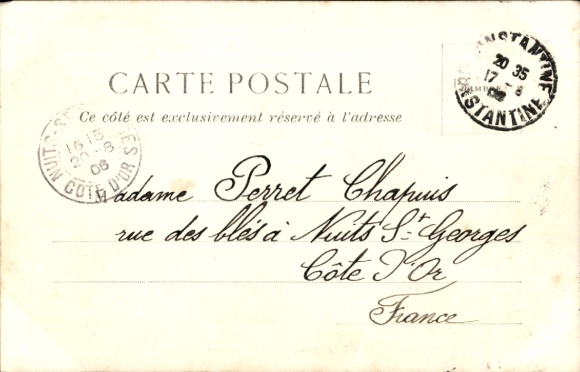 CONSTANTINE
20 35
17 - 8
06
CONSTANTINE
TIMBRE
CARTE POSTALE
Ce côté est exclusivement réservé à l'adresse
NUITS-ST-GEORGES
16 15
20 - 8
06
COTE D'OR
Madame Perret Chapuis
rue des blés à Nuits St Georges
Côte d'Or
France